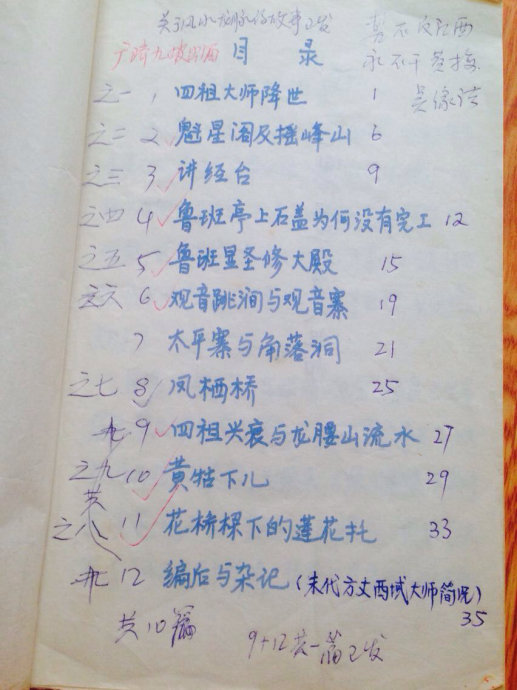 目 录
之一 1 四祖大师降世 1
之二 2 魁星阁及摇峰山 6
之三 3 讲经台 9
之四 4 鲁班亭上石盖为何没有完工 12
之五 5 鲁班显圣修大殿 15
之六 6 观音跳涧与观音寨 19
7 太平寨与角落洞 21
之七 8 凤栖桥 25
9 四祖兴衰与龙腰山流水 27
之九 10 黄牯下儿 29
之八 11 花桥樑下的莲花托 33
12 编后与杂记(末代方丈西域大师简况) 35
共10篇
9+12共一篇已发